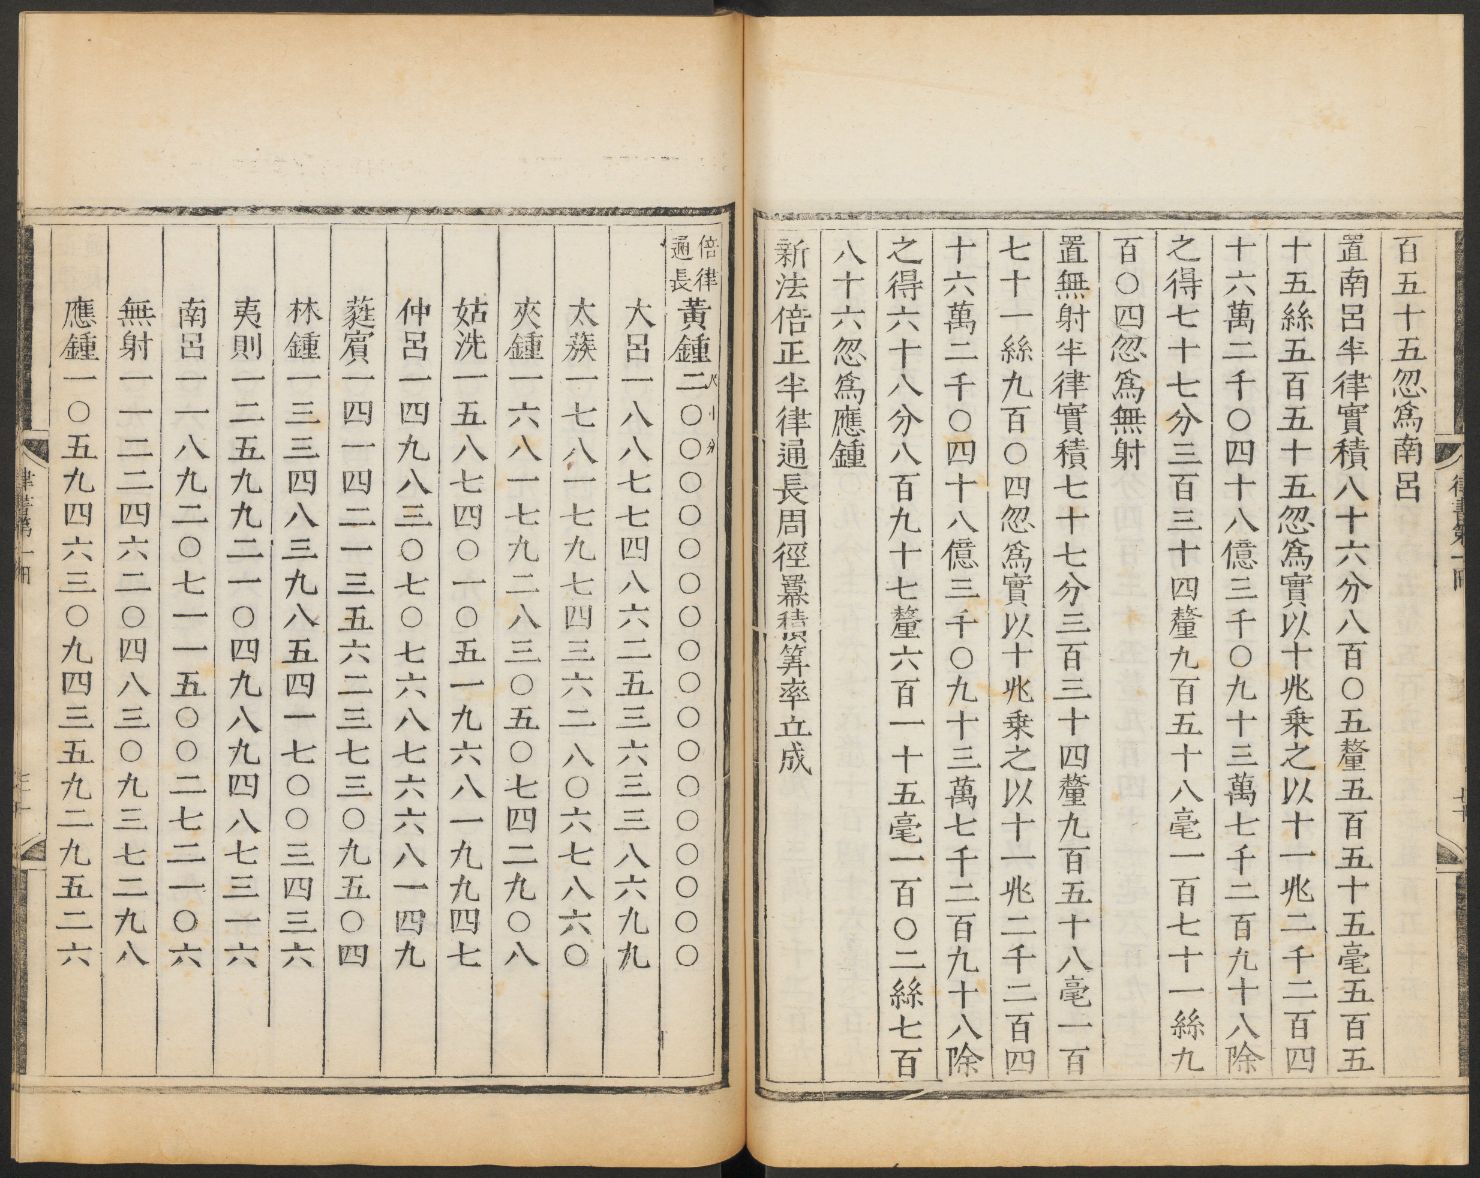 百五十五忽爲南呂
置南呂半律實積八十六分八百〇五釐五百五十五毫五百五
十五絲五百五十五忽爲實以十兆乗之以十一兆二千二百四
十六萬二千〇四十八億三千〇九十三萬七千二百九十八除
之得七十七分三百三十四釐九百五十八毫一百七十一絲九
百〇四忽爲無射
置無射半律實積七十七分三百三十四釐九百五十八毫一百
七十一絲九百〇四忽爲實以十兆乗之以十一兆二千二百四
十六萬二千〇四十八億三千〇九十三萬七千二百九十八除
之得六十八分八百九十七釐六百一十五毫一百〇二絲七百
八十六忽爲應鍾
新法倍正半律通長周徑羃積筭率立成
倍律通長黃鍾二尺〇寸〇分〇〇〇〇〇〇〇〇〇〇〇〇〇〇〇
大呂一八八七七四八六二五三六三三八六九九
太蔟一七八一七九七四三六二八〇六七八六〇
夾鍾一六八一七九二八三〇五〇七四二九〇八
姑洗一五八七四〇一〇五一九六八一九九四七
仲呂一四九八三〇七〇七六八七六六八一四九
蕤賓一四一四二一三五六二三七三〇九五〇四
林鍾一三三四八三九八五四一七〇〇三四三六
夷則一二五九九二一〇四九八九四八七三一六
南呂一一八九二〇七一一五〇〇二七二一〇六
無射一一二二四六二〇四八三〇九三七二九八
應鍾一〇五九四六三〇九四三五九二九五二六
律書第一冊